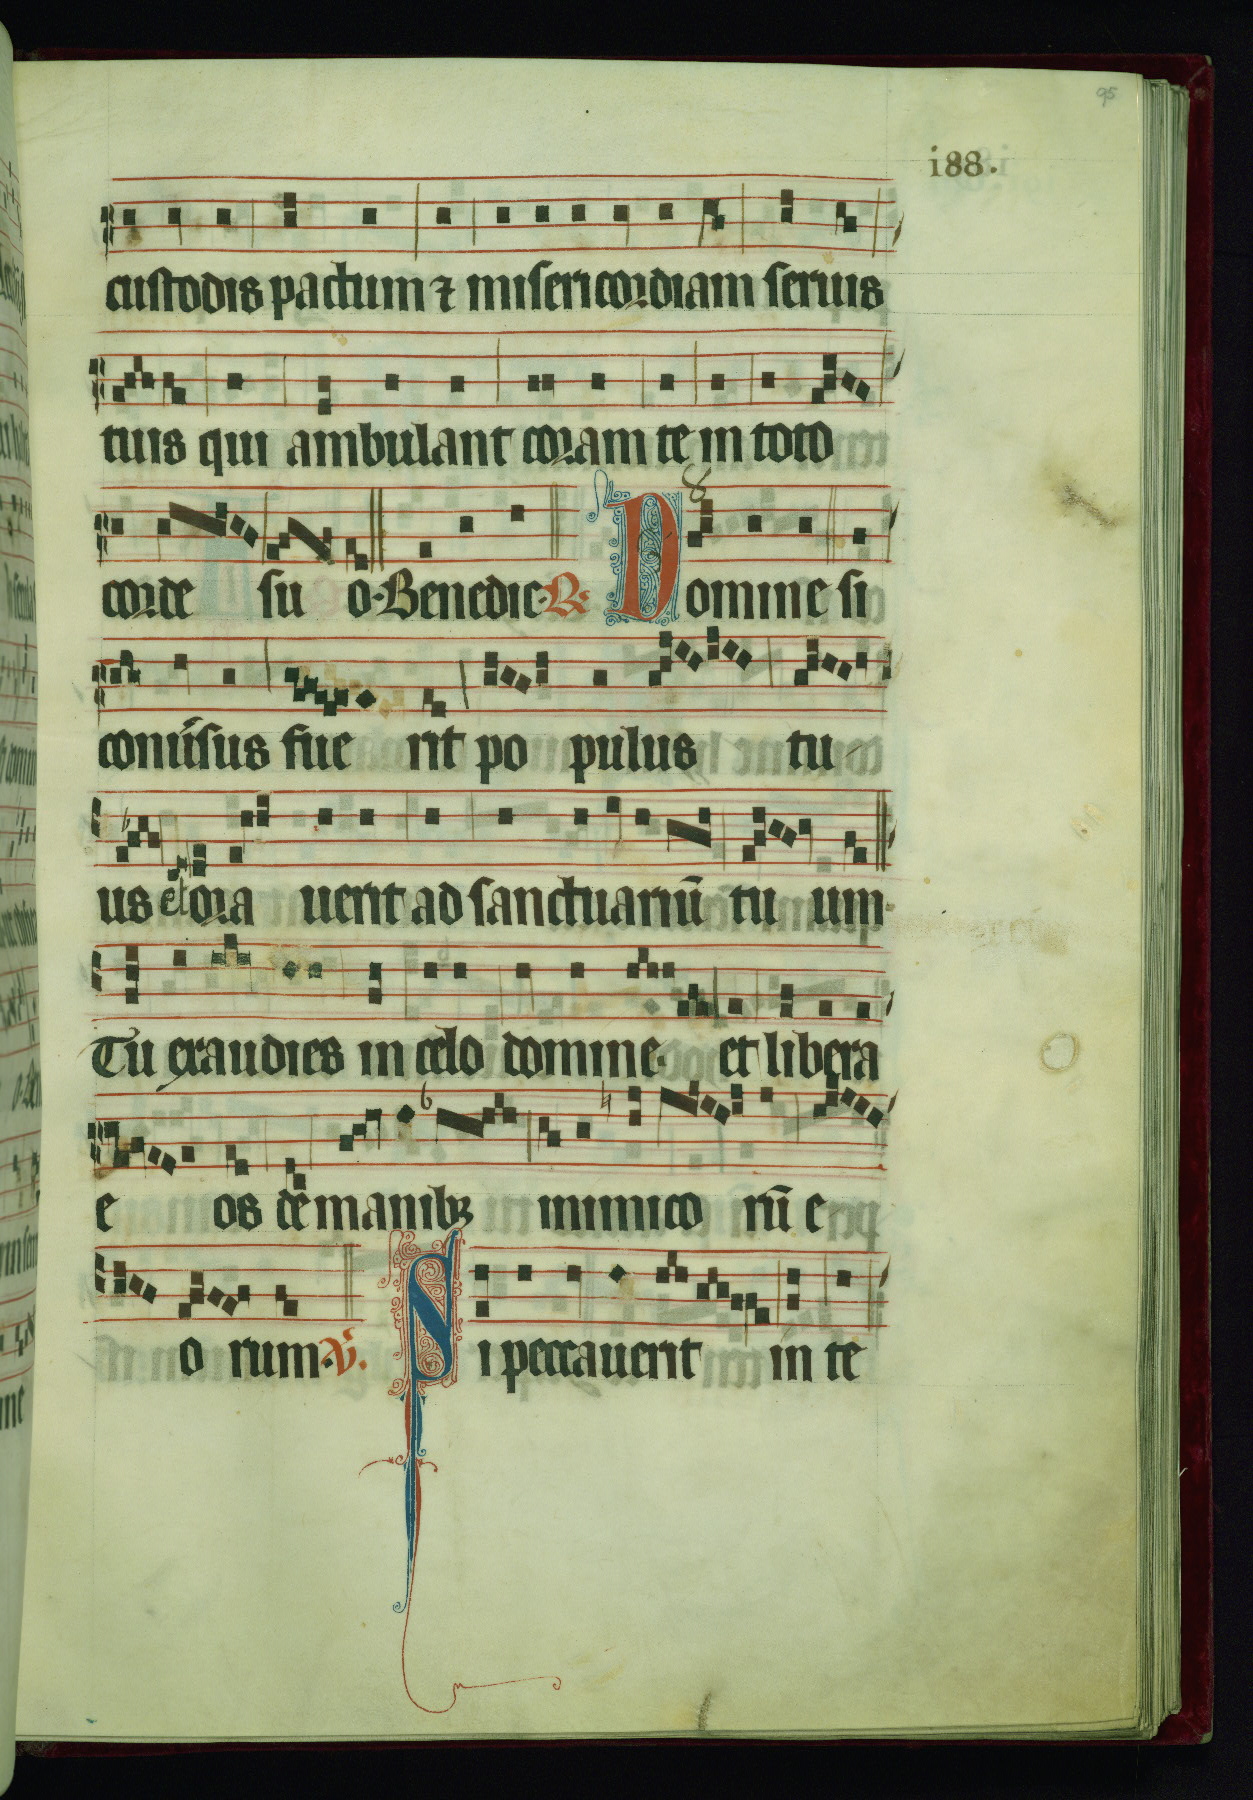 95
i88.
custodis pactum ⁊ misericordiam seruis
tuis qui ambulant coram te in toto
8
corde su o. Benedic. ℟. Domine si
conu̾sus fue rit po pulus tu
us et ora uerit ad sanctuariū tu um.
Tu exaudies in celo domine. et libera
e os de manibꝫ inimico rū e
o rum. ℣. Si peccauerit in te